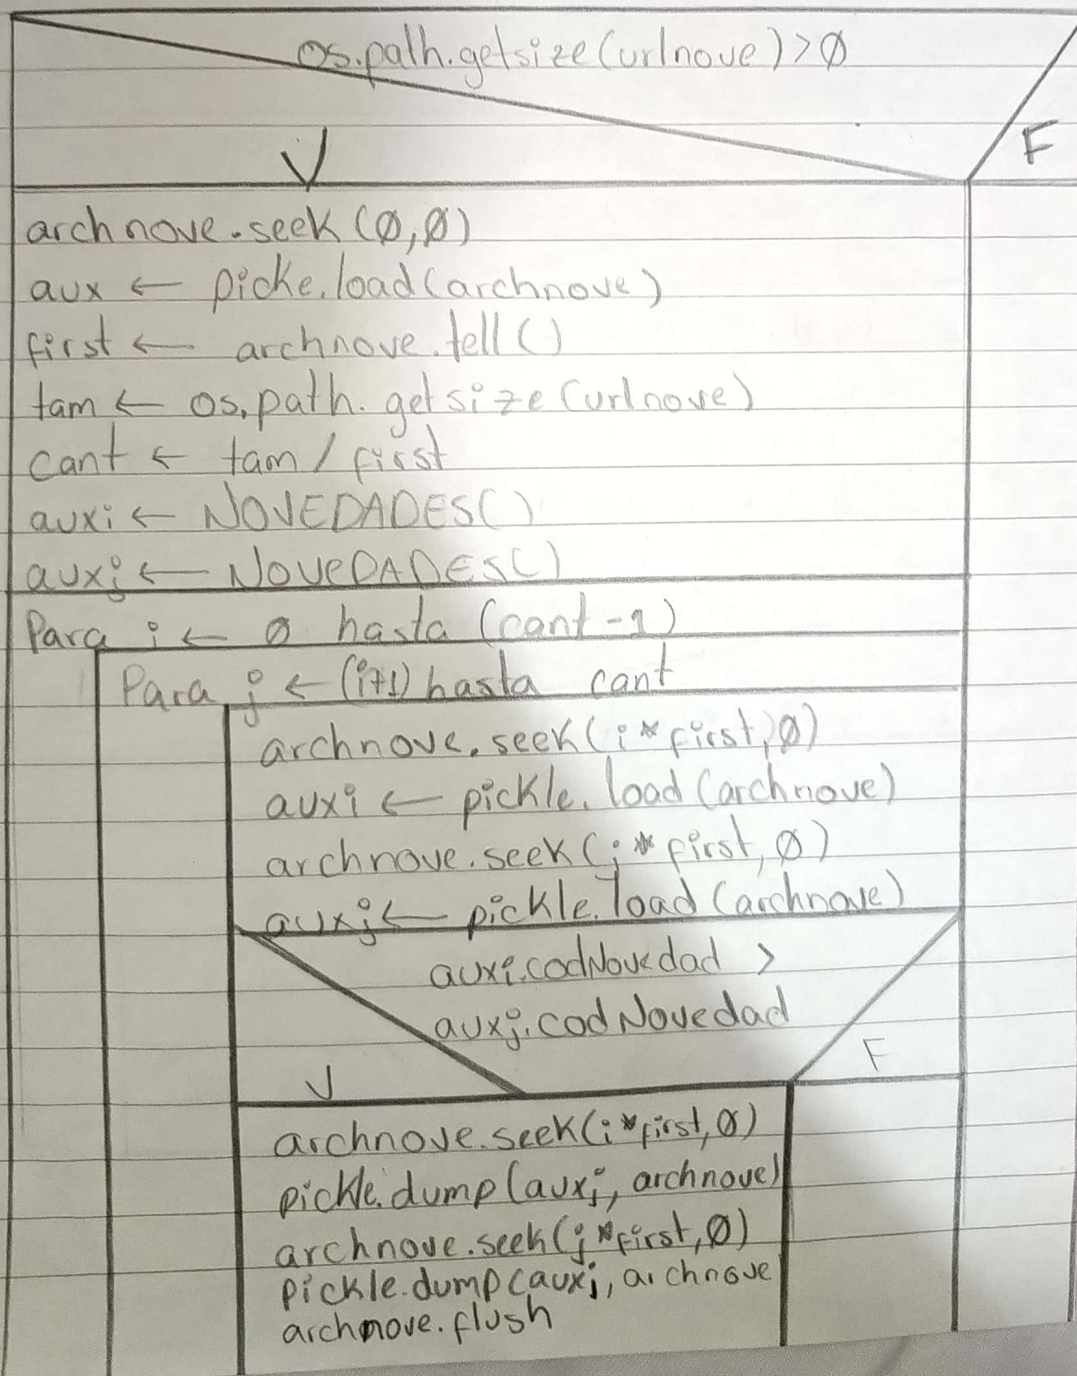 os.path.getsize(urlnove)>0
V
F
archnove.seek(0,0)
aux ← picke.load(archnove)
first ← archnove.tell()
tam ← os.path.getsize(urlnove)
cant ← tam / first
auxi ← NOVEDADES()
auxj ← NOVEDADES()
Para i ← 0 hasta (cant-1)
Para j ← (i+1) hasta cant
archnove.seek(i*first,0)
auxi ← pickle.load(archnove)
archnove.seek(j*first,0)
auxj ← pickle.load(archnove)
auxi.codNovedad >
auxj.codNovedad
V
F
archnove.seek(i*first,0)
pickle.dump(auxj, archnove)
archnove.seek(j*first,0)
pickle.dump(auxi, archnove
archnove.flush